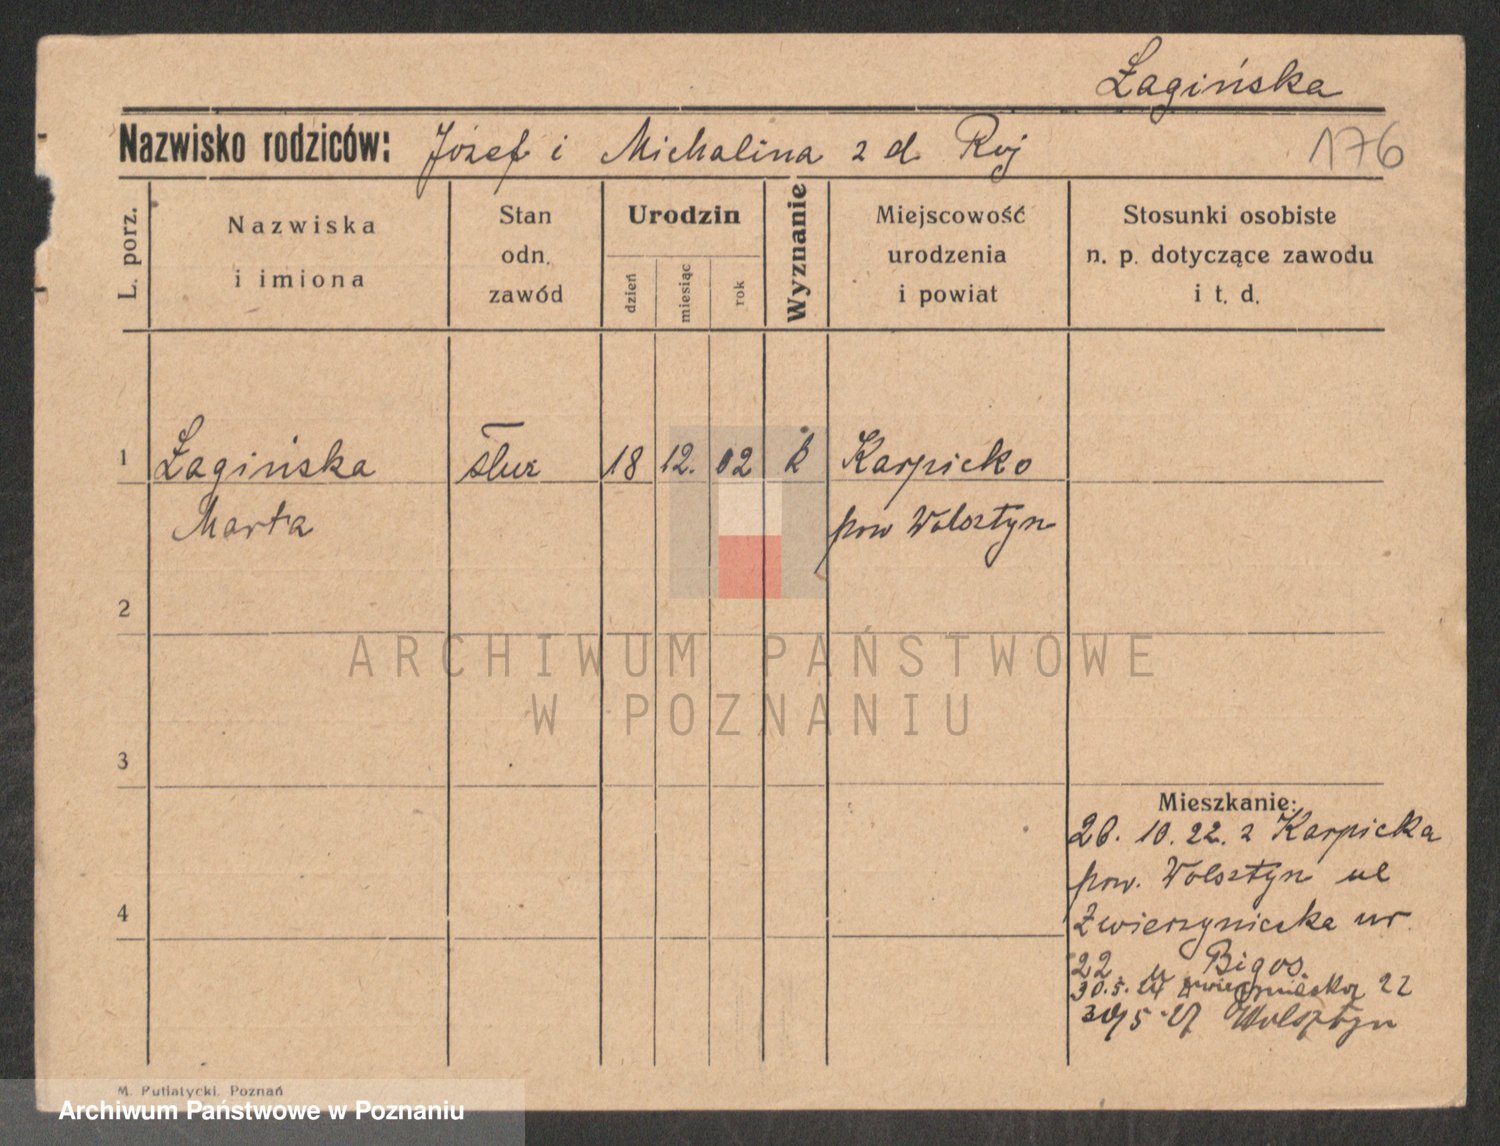 Łagińska
Nazwisko rodziców: Józef i Michalina z d. Roj
176
L. porz.
Nazwiska
i imiona
Stan
odn.
zawód
Urodzin
dzień
miesiąc
rok
Wyznanie
Miejscowość
urodzenia
i powiat
Stosunki osobiste
n. p. dotyczące zawodu
i t. d.
1 Łagińska służ 18 12. 02 k Karpicko
Marta pow Wolsztyn
2
ARCHIWUM PAŃSTWOWE
W POZNANIU
3
Mieszkanie:
26. 10. 22. z Karpicka
pow. Wolsztyn ul
4
Zwierzyniecka nr
22 u Bigos
30.5. Zwierzyniecka 22
30/5 27 Wolsztyn
M. Putiatycki, Poznań
Archiwum Państwowe w Poznaniu